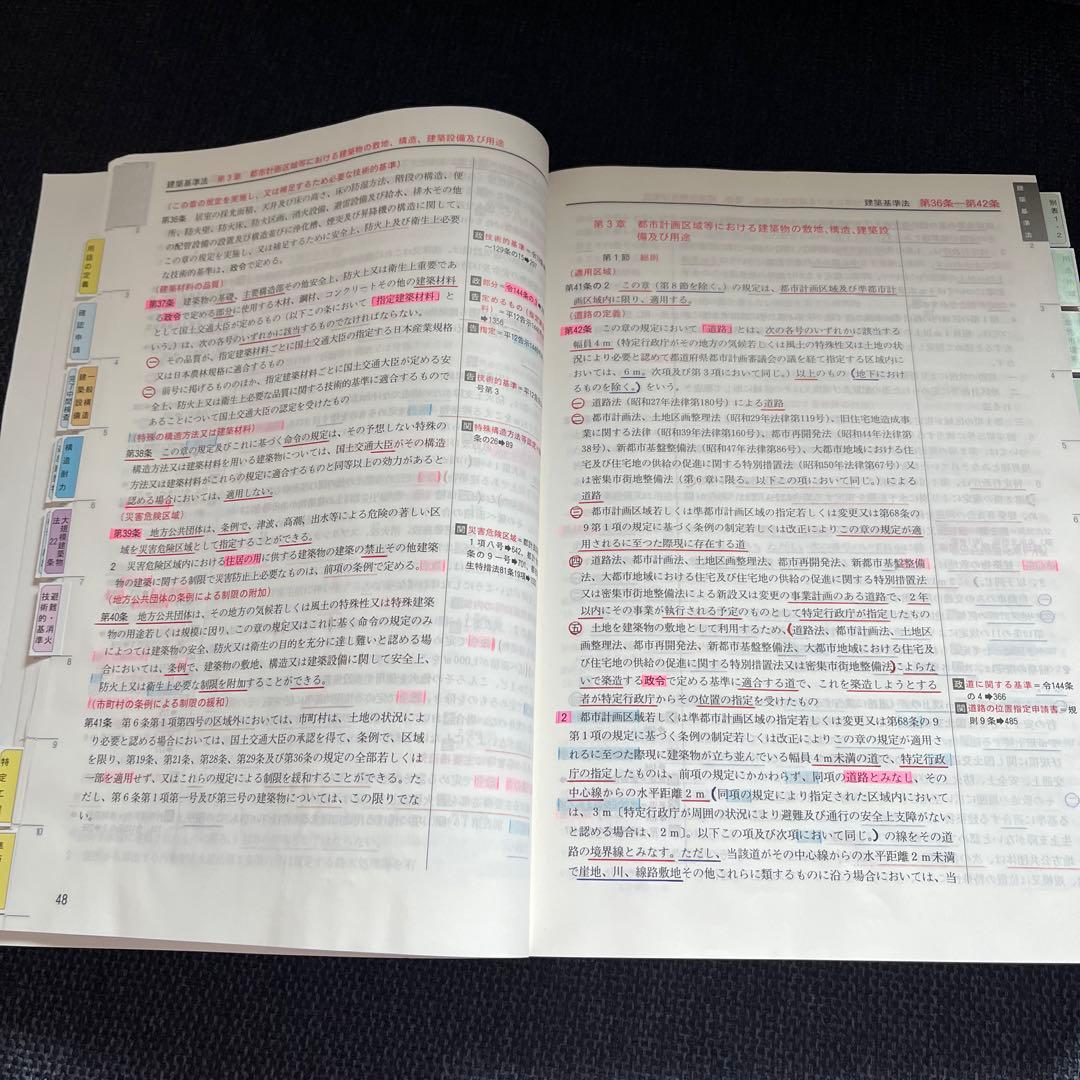 建築基準法 第3章 都市計画区域等における建築物の敷地、構造、建築設備及び用途
(この章の規定を実施し、又は補足するため必要な技術的基準)
第36条 居室の採光面積、天井及び床の高さ、床の防湿方法、階段の構造、便
所、防火壁、防火床、防火区画、消火設備、避雷設備及び給水、排水その他
の配管設備の設置及び構造並びに浄化槽、煙突及び昇降機の構造に関して、
この章の規定を実施し、又は補足するために安全上、防火上及び衛生上必要
な技術的基準は、政令で定める。
(建築材料の品質)
第37条 建築物の基礎、主要構造部その他安全上、防火上又は衛生上重要であ
る政令で定める部分に使用する木材、鋼材、コンクリートその他の建築材料
として国土交通大臣が定めるもの(以下この条において「指定建築材料」と
いう。)は、次の各号のいずれかに該当するものでなければならない。
一 その品質が、指定建築材料ごとに国土交通大臣の指定する日本産業規格
又は日本農林規格に適合するもの
二 前号に掲げるもののほか、指定建築材料ごとに国土交通大臣が定める安
全上、防火上又は衛生上必要な品質に関する技術的基準に適合するもので
あることについて国土交通大臣の認定を受けたもの
(特殊の構造方法又は建築材料)
第38条 この章の規定及びこれに基づく命令の規定は、その予想しない特殊の
構造方法又は建築材料を用いる建築物については、国土交通大臣がその構造
方法又は建築材料がこれらの規定に適合するものと同等以上の効力があると
認める場合においては、適用しない。
(災害危険区域)
第39条 地方公共団体は、条例で、津波、高潮、出水等による危険の著しい区
域を災害危険区域として指定することができる。
2 災害危険区域内における住居の用に供する建築物の建築の禁止その他建築
物の建築に関する制限で災害防止上必要なものは、前項の条例で定める。
(地方公共団体の条例による制限の附加)
第40条 地方公共団体は、その地方の気候若しくは風土の特殊性又は特殊建築
物の用途若しくは規模に因り、この章の規定又はこれに基く命令の規定のみ
によつては建築物の安全、防火又は衛生の目的を充分に達し難いと認める場
合においては、条例で、建築物の敷地、構造又は建築設備に関して安全上、
防火上又は衛生上必要な制限を附加することができる。
(市町村の条例による制限の緩和)
第41条 第6条第1項第四号の区域外においては、市町村は、土地の状況によ
り必要と認める場合においては、国土交通大臣の承認を得て、条例で、区域
を限り、第19条、第21条、第28条、第29条及び第36条の規定の全部若しくは
一部を適用せず、又はこれらの規定による制限を緩和することができる。た
だし、第6条第1項第一号及び第三号の建築物については、この限りでな
い。
政 技術的基準=令
〜129条の15
政 部分=令144条の3
告 定めるもの
1356
告 指定=平12告示
告 技術的基準=平12
号第3
関 特殊構造方法等認定
条の26➡89
関 災害危険区域=
1項八号➡642、
条の9一号➡701、
生特措法81条19項
48
用語の定義
確認申請
一般構造
建築設備
完了中間検査
構造耐力
大規模建築物
法22条
避難・消火
技術的基準
3
4
5
6
7
8
9
10
建築基準法 第36条—第42条
第3章 都市計画区域等における建築物の敷地、構造、建築設
備及び用途
第1節 総則
(適用区域)
第41条の2 この章(第8節を除く。)の規定は、都市計画区域及び準都市計
画区域内に限り、適用する。
(道路の定義)
第42条 この章の規定において「道路」とは、次の各号のいずれかに該当する
幅員4m(特定行政庁がその地方の気候若しくは風土の特殊性又は土地の状
況により必要と認めて都道府県都市計画審議会の議を経て指定する区域内に
おいては、6m。次項及び第3項において同じ。)以上のもの(地下におけ
るものを除く。)をいう。
一 道路法(昭和27年法律第180号)による道路
二 都市計画法、土地区画整理法(昭和29年法律第119号)、旧住宅地造成事
業に関する法律(昭和39年法律第160号)、都市再開発法(昭和44年法律第
38号)、新都市基盤整備法(昭和47年法律第86号)、大都市地域における住
宅及び住宅地の供給の促進に関する特別措置法(昭和50年法律第67号)又
は密集市街地整備法(第6章に限る。以下この項において同じ。)による
道路
三 都市計画区域若しくは準都市計画区域の指定若しくは変更又は第68条の
9第1項の規定に基づく条例の制定若しくは改正によりこの章の規定が適
用されるに至つた際現に存在する道
四 道路法、都市計画法、土地区画整理法、都市再開発法、新都市基盤整備
法、大都市地域における住宅及び住宅地の供給の促進に関する特別措置法
又は密集市街地整備法による新設又は変更の事業計画のある道路で、2年
以内にその事業が執行される予定のものとして特定行政庁が指定したもの
五 土地を建築物の敷地として利用するため、道路法、都市計画法、土地区
画整理法、都市再開発法、新都市基盤整備法、大都市地域における住宅及
び住宅地の供給の促進に関する特別措置法又は密集市街地整備法によらな
いで築造する政令で定める基準に適合する道で、これを築造しようとする
者が特定行政庁からその位置の指定を受けたもの
2 都市計画区域若しくは準都市計画区域の指定若しくは変更又は第68条の9
第1項の規定に基づく条例の制定若しくは改正によりこの章の規定が適用さ
れるに至つた際現に建築物が立ち並んでいる幅員4m未満の道で、特定行政
庁の指定したものは、前項の規定にかかわらず、同項の道路とみなし、その
中心線からの水平距離2m(同項の規定により指定された区域内において
は、3m〔特定行政庁が周囲の状況により避難及び通行の安全上支障がない
と認める場合は、2m〕。以下この項及び次項において同じ。)の線をその道
路の境界線とみなす。ただし、当該道がその中心線からの水平距離2m未満
で崖地、川、線路敷地その他これらに類するものに沿う場合においては、当
政 道に関する基準=令144条
の4➡366
関 道路の位置指定申請書=規
則9条➡485
建築基準法
2
別表1・2
3
4
5
6